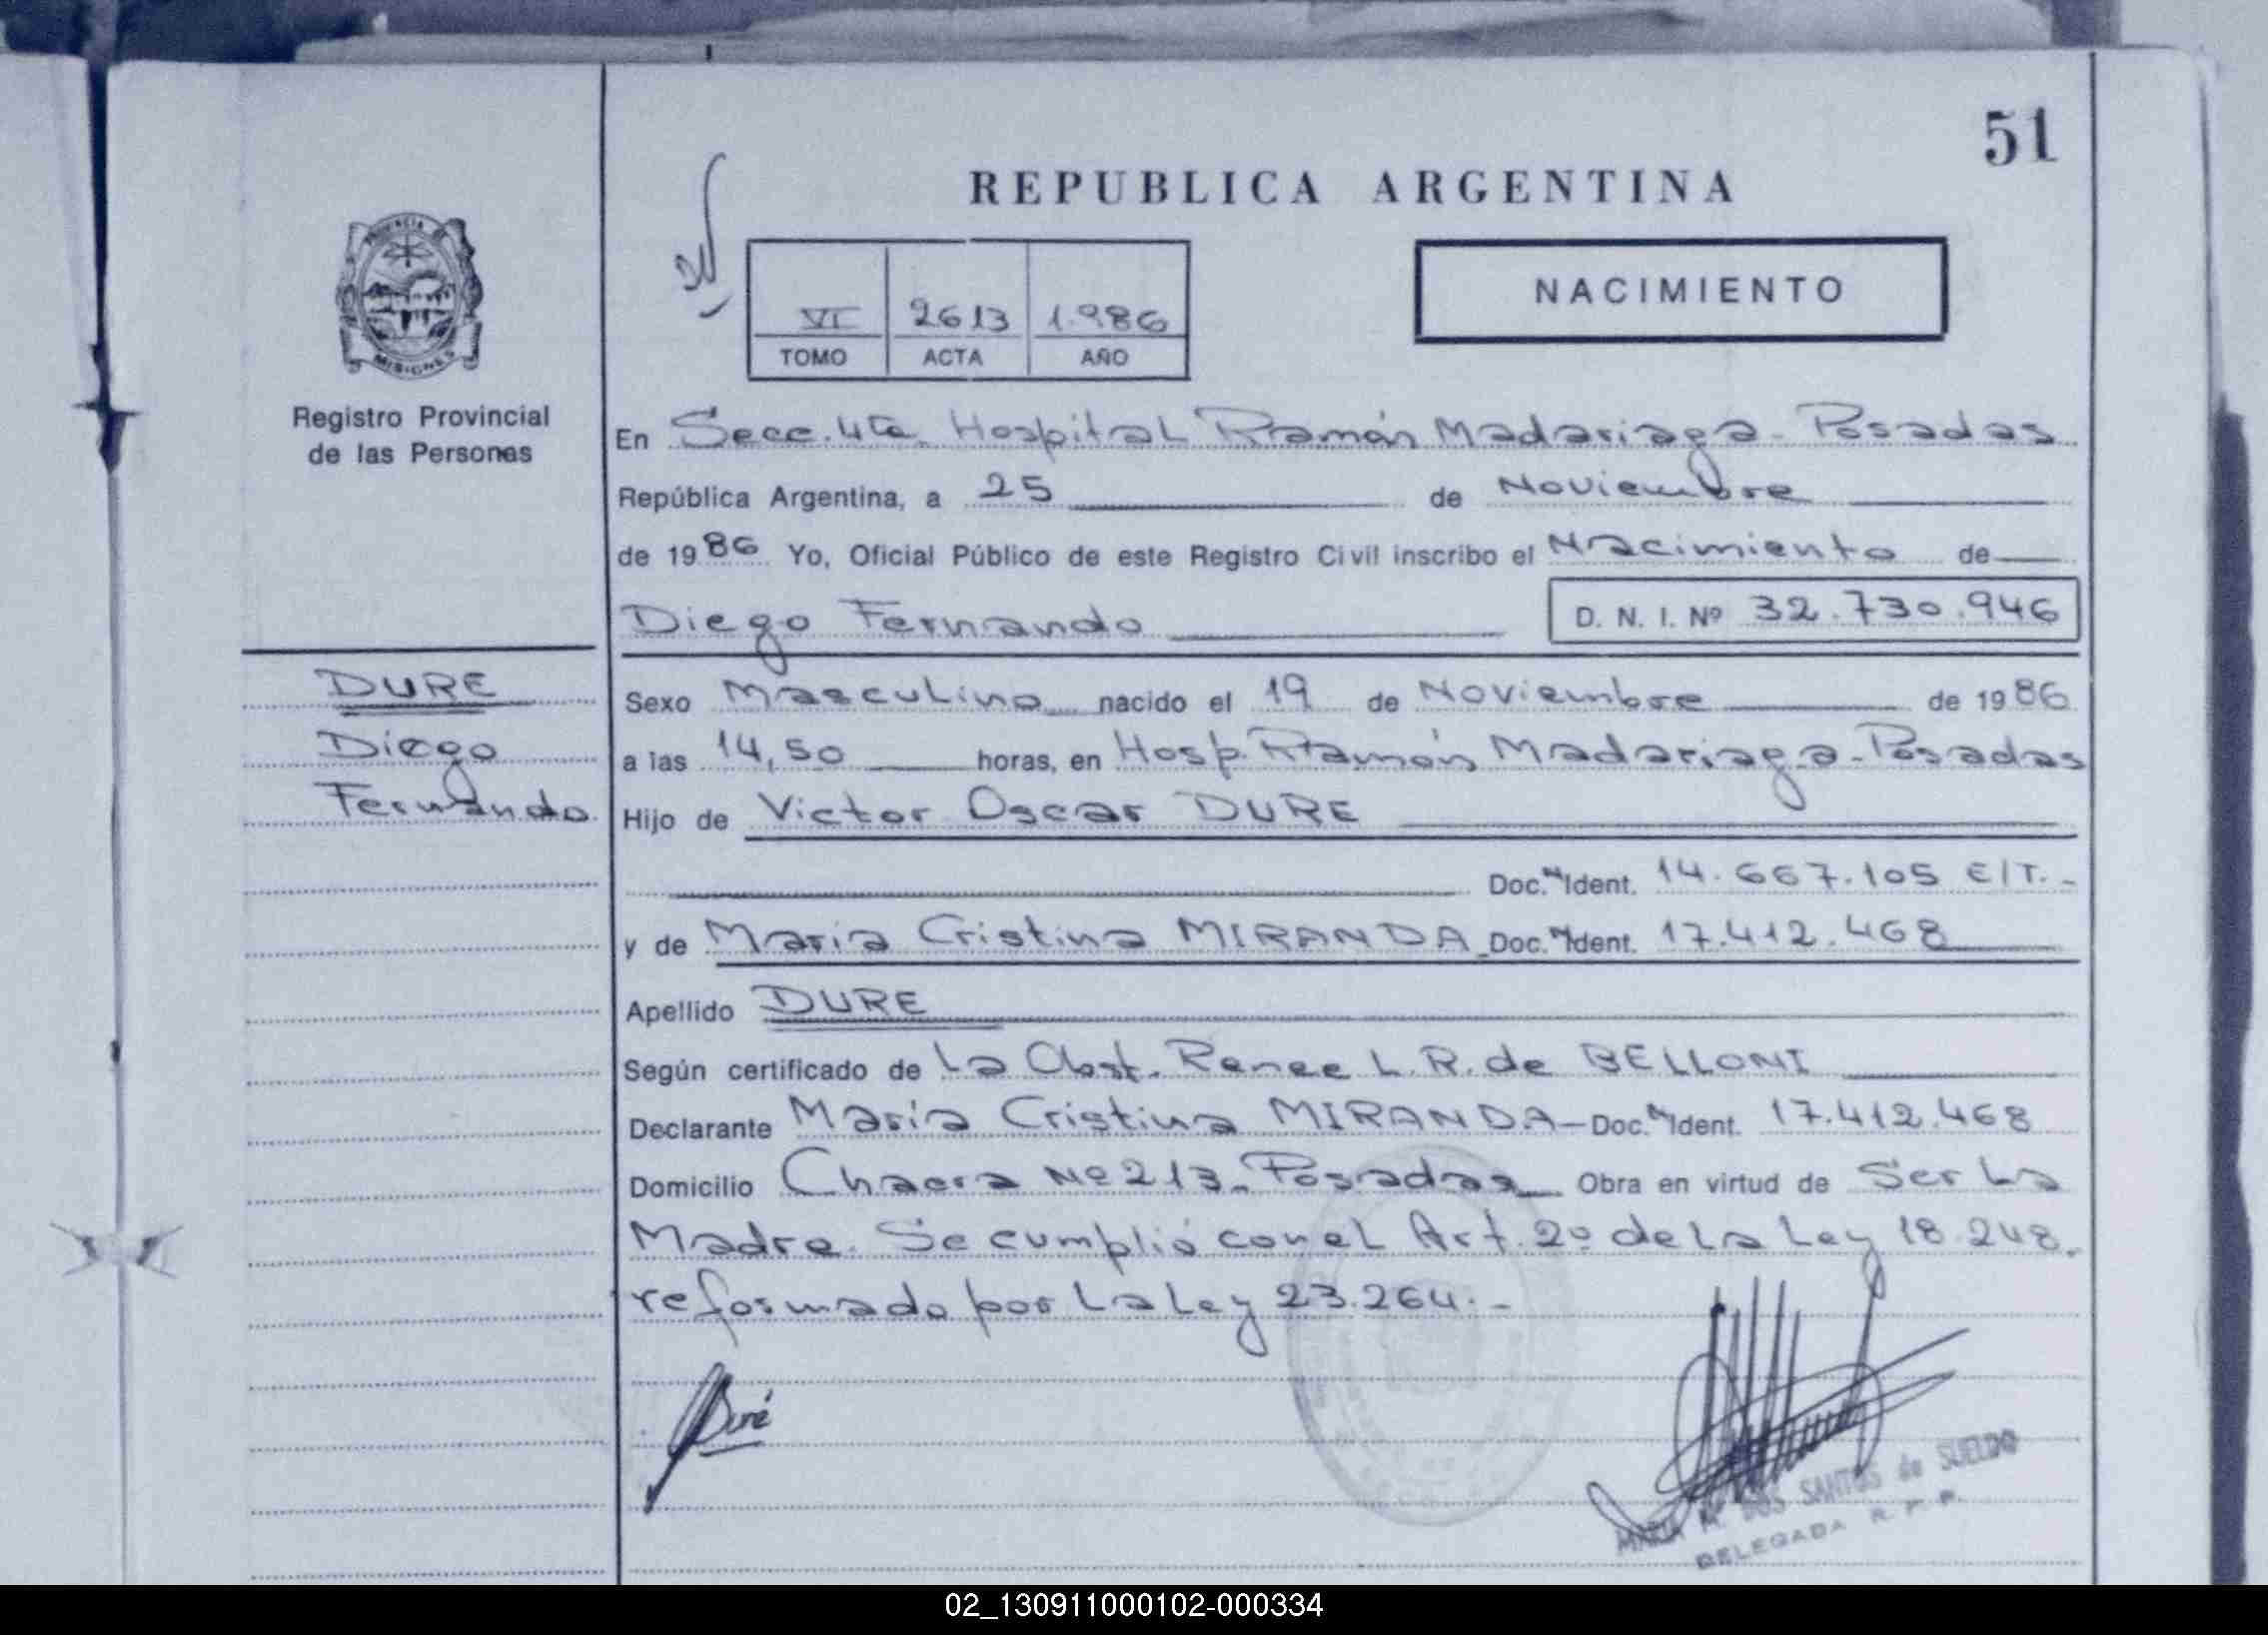 51
REPUBLICA ARGENTINA
PROVINCIA DE
MISIONES
Registro Provincial
de las Personas
VI 2613 1.986
TOMO ACTA AÑO
NACIMIENTO
En Secc. 4ta. Hospital Ramón Madariaga - Posadas
República Argentina, a 25 de Noviembre
de 1986 Yo, Oficial Público de este Registro Civil inscribo el Nacimiento de
Diego Fernando D. N. I. Nº 32.730.946
DURE
Diego
Fernando
Sexo Masculino nacido el 19 de Noviembre de 1986
a las 14,50 horas, en Hosp. Ramón Madariaga - Posadas
Hijo de Victor Oscar DURE
Doc. Ident. 14.667.105 E/T.-
y de Maria Cristina MIRANDA Doc. Ident. 17.412.468
Apellido DURE
Según certificado de La Obst. Renee L. R. de BELLONI
Declarante María Cristina MIRANDA - Doc. Ident. 17.412.468
Domicilio Chacra Nº 213 - Posadas Obra en virtud de Ser La
Madre. Se cumplió con el Art. 2º de La Ley 18.248.
reformado por La Ley 23.264.-
Duré
MARIA M. DOS SANTOS de SUELDO
DELEGADA R. P. P.
02_130911000102-000334